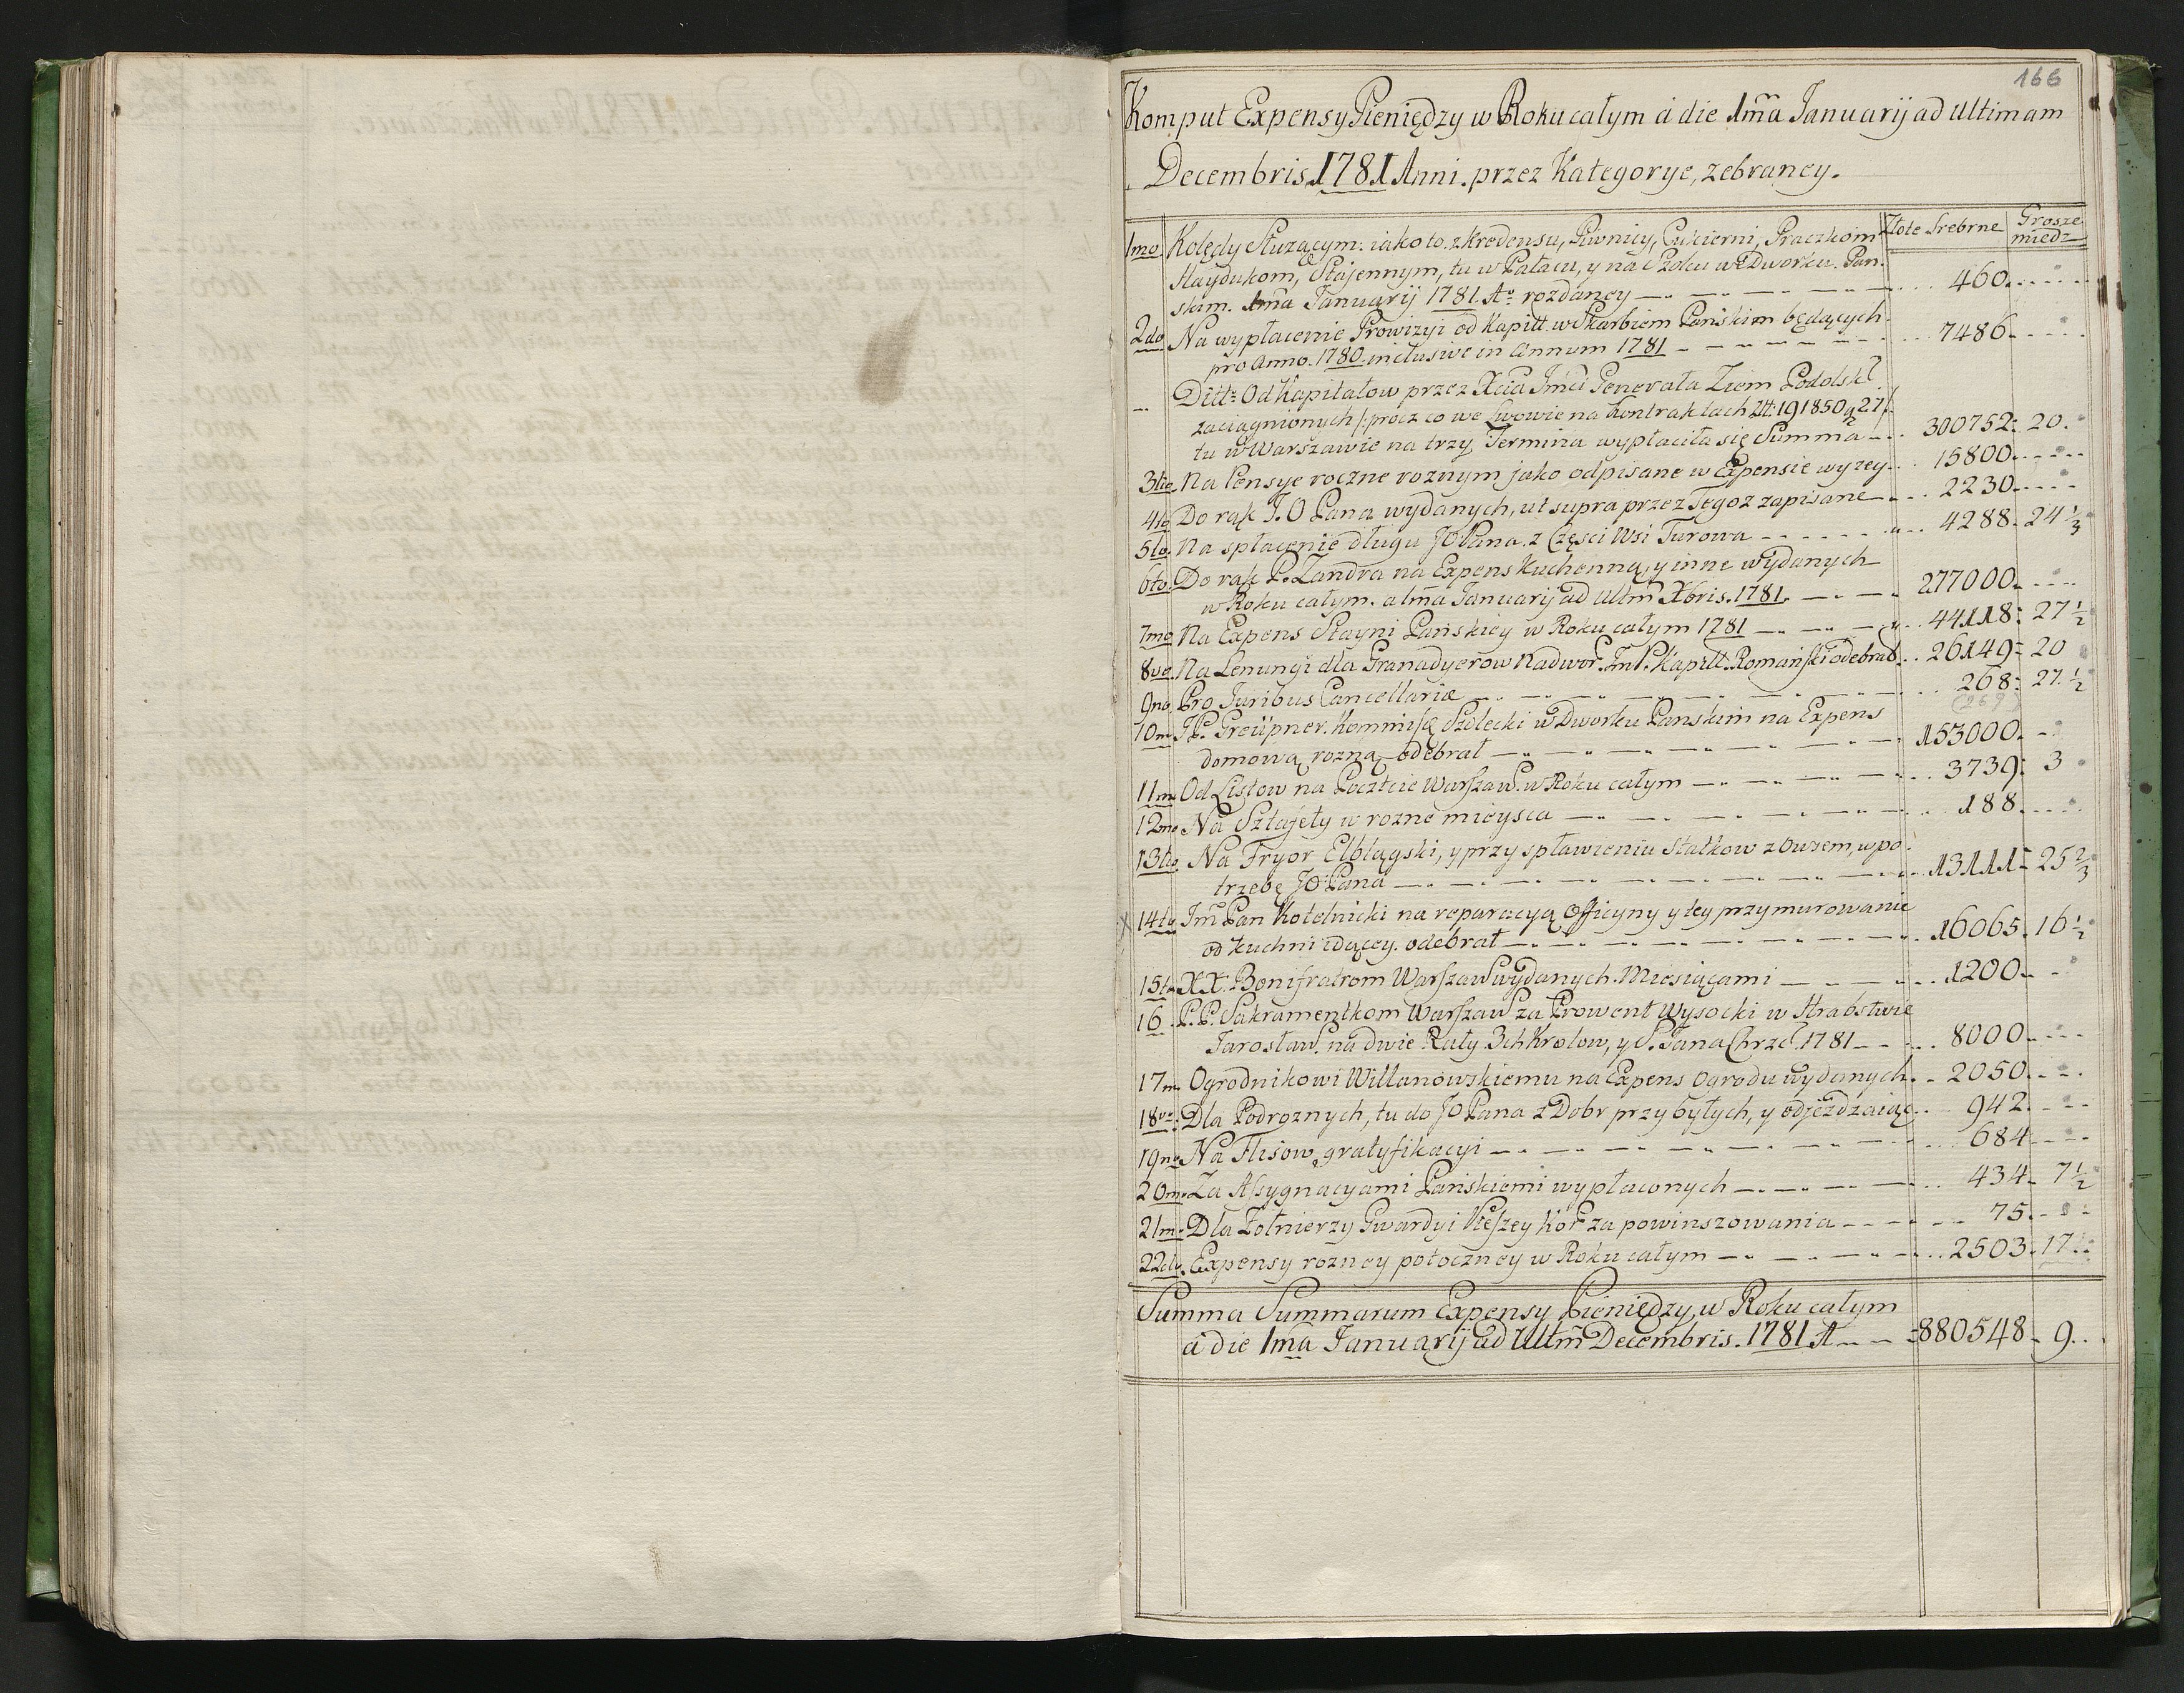 166
Komput Expensy Pieniędzy w Roku całym à die 1ma Januarij ad Ultimam
Decembris 1781 Anni. przez Kategorye, zebraney.
Złote Srebrne Grosze miedz
1mo Kolędy Służącym: iako to. z Kredensu, Piwnicy, Cukierni, Praczkom
Haydukom, Stajennym, tu w Pałacu, y na Szolcu w Dworku. Pań-
skim. 1ma Januarij 1781. Ao rozdaney 460.
2do Na wypłacenie Prowizyi od Kapitt. w Skarbiem Pańskim będących
pro Anno. 1780. inclusive in Annum 1781 7486.
Ditt: Od Kapitałow przez Xcia Jmci Generała Ziem Podolskł
zaciągnionych /: procz co we Lwowie na Kontraktach 191850 g 27 /:
tu w Warszawie na trzy Termina wypłaciła się Summa 300752: 20.
3tio. Na Pensye roczne roznym jako odpisane w Expensie wyzey 15800.
4to Do rąk J. O Pana wydanych, ut supra przez Tegoz zapisane 2230.
5to. Na spłacenie długu JO Pana. z Części Wsi Turowa 4288. 24 1/3
6to. Do rąk P. Zandra na Expens Kuchenną, y inne wydanych
w Roku całym. a 1ma Januarij ad Ultm Xbris. 1781. 277000.
7mo Na Expens Stayni Pańskiey w Roku całym 1781 44118: 27 1/2
8vo. Na Lenungi dla Granadyerow Nadwor. Jm P. Kapitt. Romański odebrał 26149: 20
9no. Pro Juribus Cancellariæ 268: 27. 1/2
(269)
10mo J P. Greüpner. Kommiss Szolecki w Dworku Panskim na Expens
domową rozną odebrał 153000.
11mo Od Listow na Poczcie Warszaw. w Roku całym 3739: 3
12mo Na Sztafety w rozne mieysca 188.
13tio. Na Fryor Elblągski, y przy spławieniu Statkow z Owsem, w po-
trzebę JO Pana 13111: 25 2/3
x 14to Jm Pan Kotelnicki na reparacyą Officyny y tey przymurowanie
od kuchni idącey. odebrał 16065. 16 1/2
15to XX. Bonifratrom Warszaw wydanych. Miesiącami 1200.
16 P.P. Sakramentkom Warszaw za Prowent Wysocki w Hrabstwie
Jarosław. na dwie Raty 3ch Krolow, y S. Jana Chrzc. 1781 8000.
17mo Ogrodnikowi Willanowskiemu na Expens Ogrodu wydanych. 2050.
18vo: Dla Podroznych, tu do JO Pana z Dobr przybyłych, y odjezdzaiąc 942.
19no Na Flisow gratyfikacyi 684
20mo Za Assygnacyami Pańskiemi wypłaconych 434. 7 1/2
21mo Dla Zołnierzy Gwardyi Pieszey Kor za powinszowania 75.
22do. Expensy rozney potoczney w Roku całym 2503. 17.
Summa Summarum Expensy Pieniędzy, w Roku całym
à die 1ma Januarij ad Ultm Decembris. 1781 A 880548. 9.